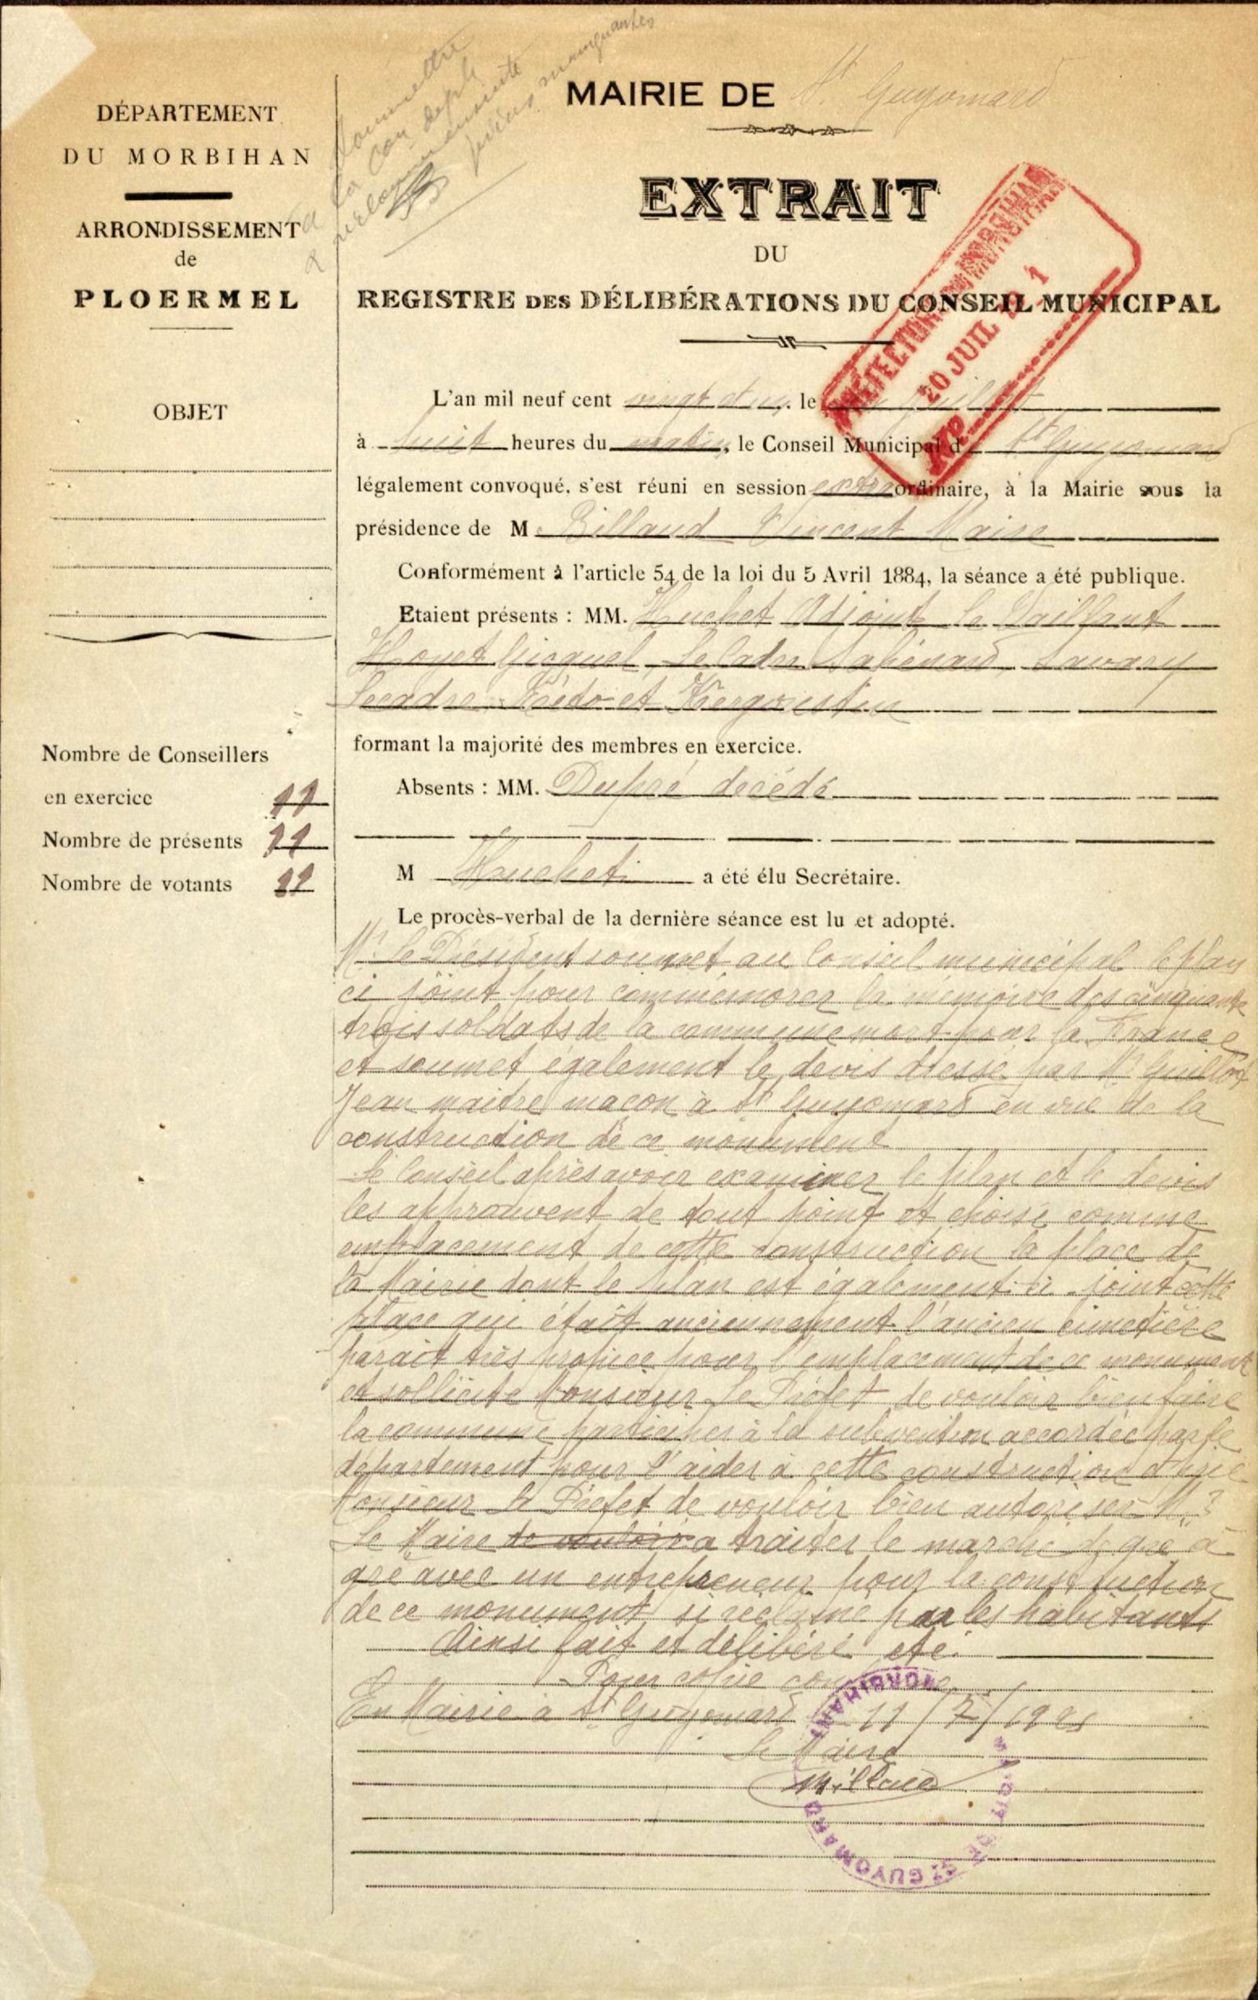 à soumettre
à la Con déple
pièces manquantes
MAIRIE DE St Guyomard
DÉPARTEMENT
DU MORBIHAN
ARRONDISSEMENT
de
PLOERMEL
OBJET
Nombre de Conseillers
en exercice 11
Nombre de présents 11
Nombre de votants 11
EXTRAIT
DU
REGISTRE DES DÉLIBÉRATIONS DU CONSEIL MUNICIPAL
PRÉFECTURE DU MORBIHAN
20 JUIL 1921
L'an mil neuf cent vingt et un, le juillet
à huit heures du matin, le Conseil Municipal d St Guyomard
légalement convoqué, s'est réuni en session extraordinaire, à la Mairie sous la
présidence de M. Billaud Vincent Maire
Conformément à l'article 54 de la loi du 5 Avril 1884, la séance a été publique.
Etaient présents : MM. Huchet Adjoint Le Vaillant
Hoyet Gicquel, Le Cadre Savary
Lecadre Rédo et
formant la majorité des membres en exercice.
Absents : MM. Dupré décédé
M Huchet a été élu Secrétaire.
Le procès-verbal de la dernière séance est lu et adopté.
Mr le Président soumet au Conseil municipal le plan
ci joint pour commémorer la mémoire des cinquante
trois soldats de la commune mort pour la France
et soumet également le devis dressé par Mr Guillot
Jean maitre maçon à St Guyomard en vue de la
construction de ce monument
Le Conseil après avoir examiner le plan et le devis
les approuvent de tout point et choisi comme
emplacement de cette construction la place de
la Mairie dont le plan est également ci-joint cette
place qui était anciennement l'ancien cimetière
parait très propice pour l'emplacement de ce monument
et sollicite Monsieur le Préfet de vouloir bien faire
la commune participer à la subvention accordée par le
département pour l'aider à cette construction et prie
Monsieur le Préfet de vouloir bien autoriser Mr
Le Maire de vouloir a traiter le marché de gré à
gré avec un entrepreneur pour la construction
de ce monument si réclamé par les habitants
Ainsi fait et délibéré etc.
Pour copie conforme
En Mairie à St Guyomard le 11/7/1921
Le Maire
Billaud
MAIRIE DE St GUYOMARD MORBIHAN